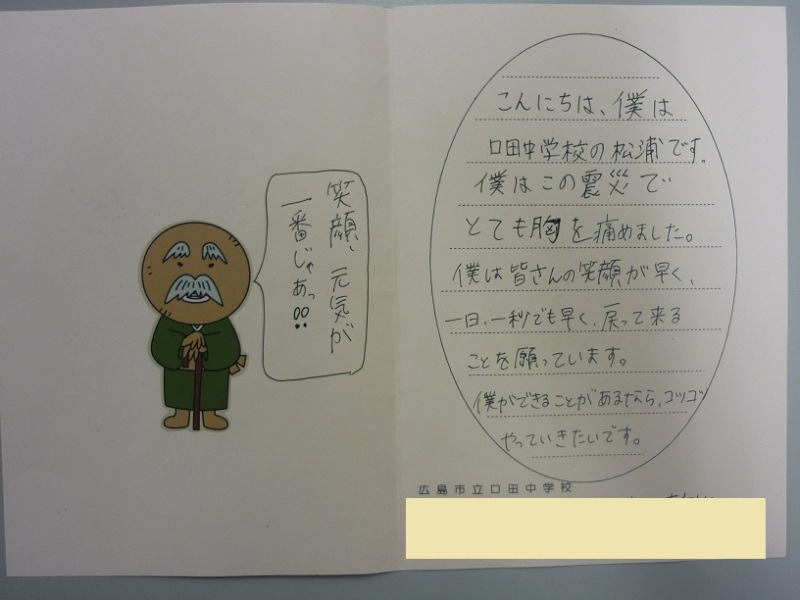 笑顔、元気が
一番じゃあっ!!
こんにちは、僕は
口田中学校の松浦です。
僕はこの震災で
とても胸を痛めました。
僕は皆さんの笑顔が早く、
一日、一秒でも早く、戻って来る
ことを願っています。
僕ができることがあるなら、コツコツ
やっていきたいです。
広島市立口田中学校